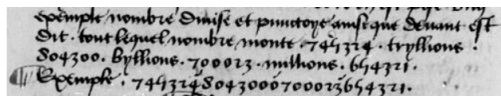 exemple nombre divise et punctoye ainsi que devant est
dit . tout lequel nombre monte . 745324 . tryllions .
804300 . byllions . 700023 . millions . 654321 .
Exemple . 745324 8043000700023 654321